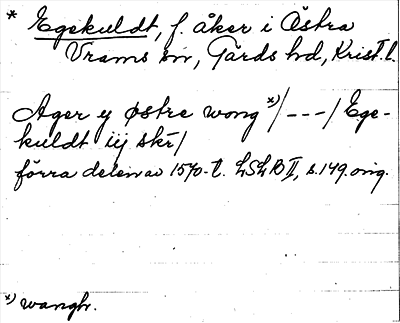 * Egekuldt, f. åker i Östra
Vrams sn, Gärds hd, Krist. l.
Ager y østre wong x)/---/ Ege-
kuldt iij skr/
förra delen av 1570-t. LSLB II, s. 149. orig.
x) wangh.